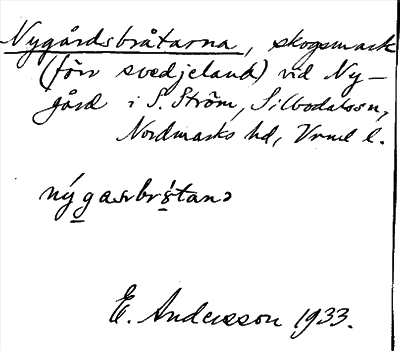 Nygårdsbråtarna, skogsmark
(förr svedjeland) vid Ny-
gård i S. Ström, Silbodals sn,
Nordmarks hd, Vrml l.
E. Andersson 1933.